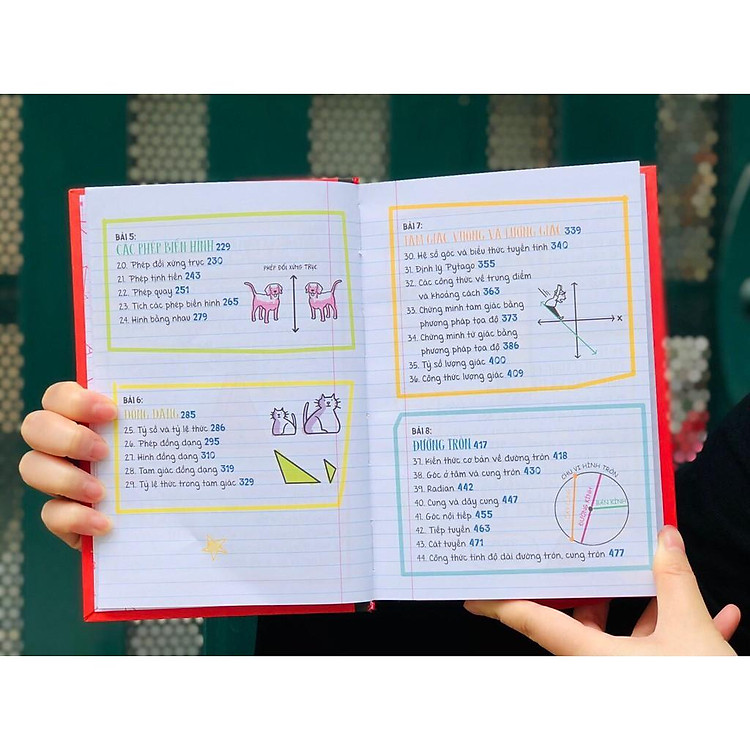 BÀI 5:
CÁC PHÉP BIẾN HÌNH 229
20. Phép đối xứng trục 230
21. Phép tịnh tiến 243
22. Phép quay 251
23. Tích các phép biến hình 265
24. Hình bằng nhau 279
PHÉP ĐỐI XỨNG TRỤC
BÀI 6:
ĐỒNG DẠNG 285
25. Tỷ số và tỷ lệ thức 286
26. Phép đồng dạng 295
27. Hình đồng dạng 310
28. Tam giác đồng dạng 319
29. Tỷ lệ thức trong tam giác 329
BÀI 7:
TAM GIÁC VUÔNG VÀ LƯỢNG GIÁC 339
30. Hệ số góc và biểu thức tuyến tính 340
31. Định lý Pytago 355
32. Các công thức về trung điểm
và khoảng cách 363
33. Chứng minh tam giác bằng
phương pháp tọa độ 373
34. Chứng minh tứ giác bằng
phương pháp tọa độ 386
35. Tỷ số lượng giác 400
36. Công thức lượng giác 409
X
BÀI 8:
ĐƯỜNG TRÒN 417
37. Kiến thức cơ bản về đường tròn 418
38. Góc ở tâm và cung tròn 430
39. Radian 442
40. Cung và dây cung 447
41. Góc nội tiếp 455
42. Tiếp tuyến 463
43. Cát tuyến 471
44. Công thức tính độ dài đường tròn, cung tròn 477
CHU VI HÌNH TRÒN
ĐƯỜNG KÍNH
BÁN KÍNH